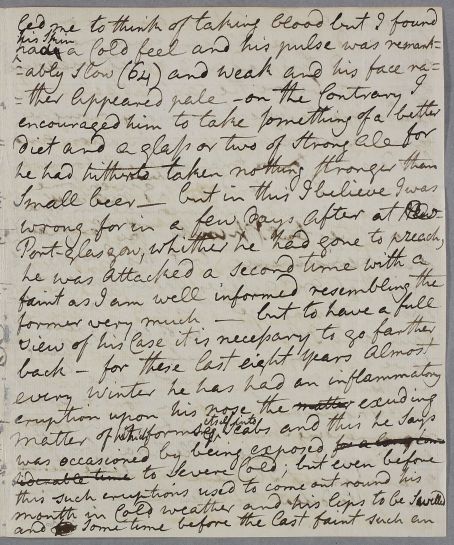 led me to think of taking blood but I found
his skin
had a cold feel and his pulse was remark=
=ably slow (64) and weak and his face ra=
=ther appeared pale - on the contrary I
encouraged him to take something of a better
diet and a glass or two of strong ale for
he had hitherto taken nothing stronger than
small beer — but in this I believe I was
wrong for in a few days after at New
Port-glasgow, whither he had gone to preach,
he was attacked a second time with a
faint as I am well informed resembling the
former very much — but to have a full
view of his case it is necessary to go farther
back — for these last eight years almost
every winter he has had an inflammatory
eruption upon his nose the matter exuding
matter of which formed itself into scabs and this he says
was occasioned by being exposed for a long con=
siderable time to severe cold, but even before
this such eruptions used to come out round his
mouth in cold weather and his lips to be swelled
and some time before the last faint such an